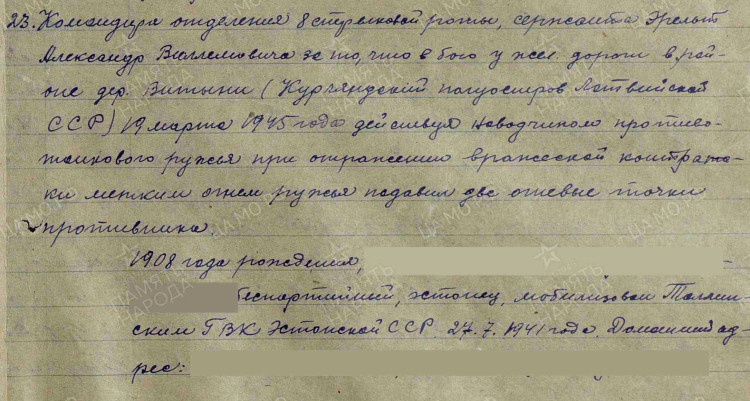 23. Командира отделения 8 стрелковой роты, сержанта Эрельт
Александр Виллемовича за то, что в бою у жел. дороги в рай-
оне дер. Витыни (Курляндский полуостров Латвийской
ССР) 19 марта 1945 года действуя наводчиком противо-
танкового ружья при отражении вражеской контрата-
ки метким огнем ружья подавил две огневые точки
противника.
1908 года рождения,
беспартийный, эстонец, мобилизован Таллин-
ским ГВК Эстонской ССР 27.7.1941 года. Домашний ад-
рес: